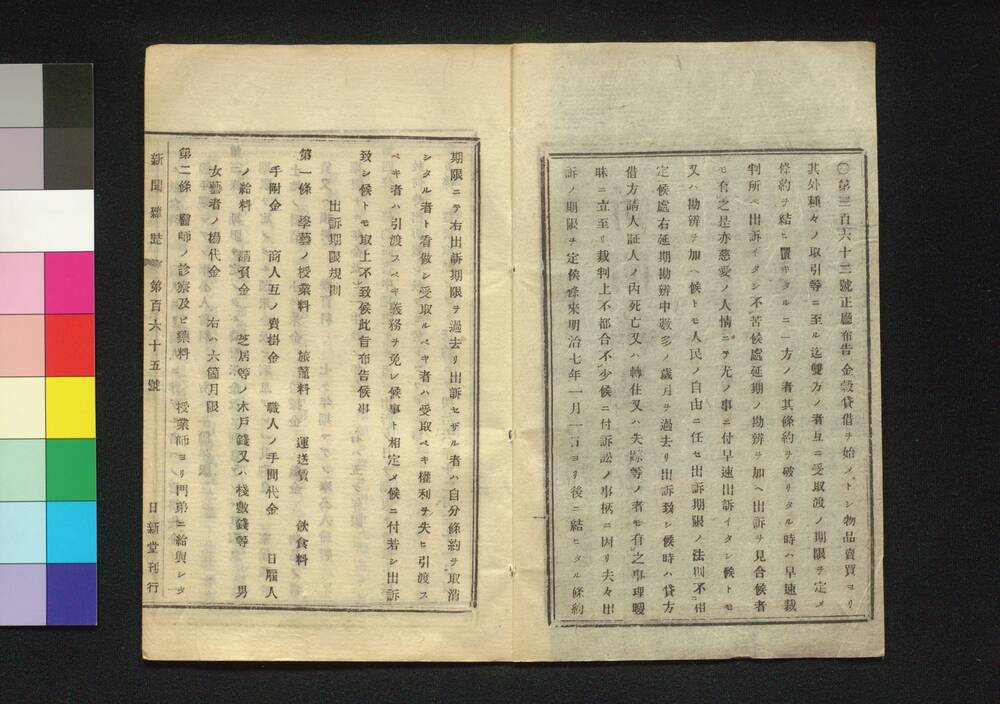 〇第三百六十二號正廳布告金穀貸借ヲ始メトシ物品賣買ヨリ
其外種々ノ取引等ニ至ル迄雙方ノ者互ニ受取渡ノ期限ヲ定メ
條約ヲ結ヒ置キタルニ一方ノ者其條約ヲ破リタル時ハ早速裁
判所ヘ出訴イタシ不苦候處延期ノ勘辨ヲ加ヘ出訴ヲ見合候者
モ有之是亦慈愛ノ人情ニテ尤ノ事ニ付早速出訴イタシ候トモ
又ハ勘辨ヲ加ヘ候トモ人民ノ自由ニ任セ出訴期限ノ法則不相
定候處右延期勘辨中數多ノ歲月ヲ過去リ出訴致シ候時ハ貸方
借方請人証人ノ內死亡又ハ轉住又ハ失踪等ノ者モ有之事理曖
昧ニ立至リ裁判上不都合不少候ニ付訴訟ノ事柄ニ因リ夫々出
訴ノ期限ヲ定候條來明治七年一月一日ヨリ後ニ結ヒタル條約
期限ニテ右出訴期限ヲ過去リ出訴セザル者ハ自分條約ヲ取消
シタル者ト看做シ受取ルベキ者ハ受取ベキ權利ヲ失ヒ引渡ス
ベキ者ハ引渡スベキ義務ヲ免レ候事ト相定メ候ニ付若シ出訴
致シ候トモ取上不致候此旨布告候事
出訴期限規則
第一條 學藝ノ授業料 旅籠料 運送賃 飮食料
手附金 商人互ノ賣掛金 職人ノ手間代金 日雇人
ノ給料 請負金 芝居等ノ木戶錢又ハ棧敷錢等 男
女藝者ノ揚代金 右ハ六箇月限
第二條 醫師ノ診察及ビ藥料 授業師ヨリ門弟ニ給與シタ
新聞雜誌 第百六十五號 日新堂刊行